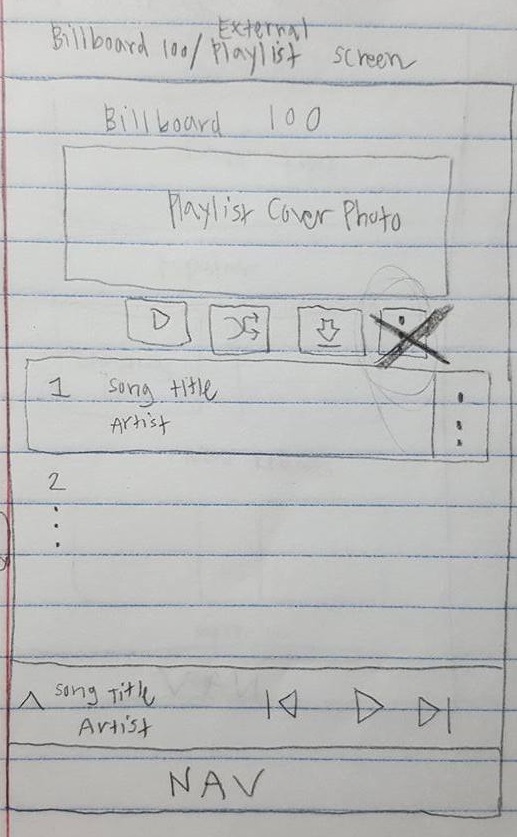 External
Billboard 100/ Playlist screen
Billboard 100
Playlist Cover Photo
1 Song title
Artist
2
Song Title
Artist
NAV